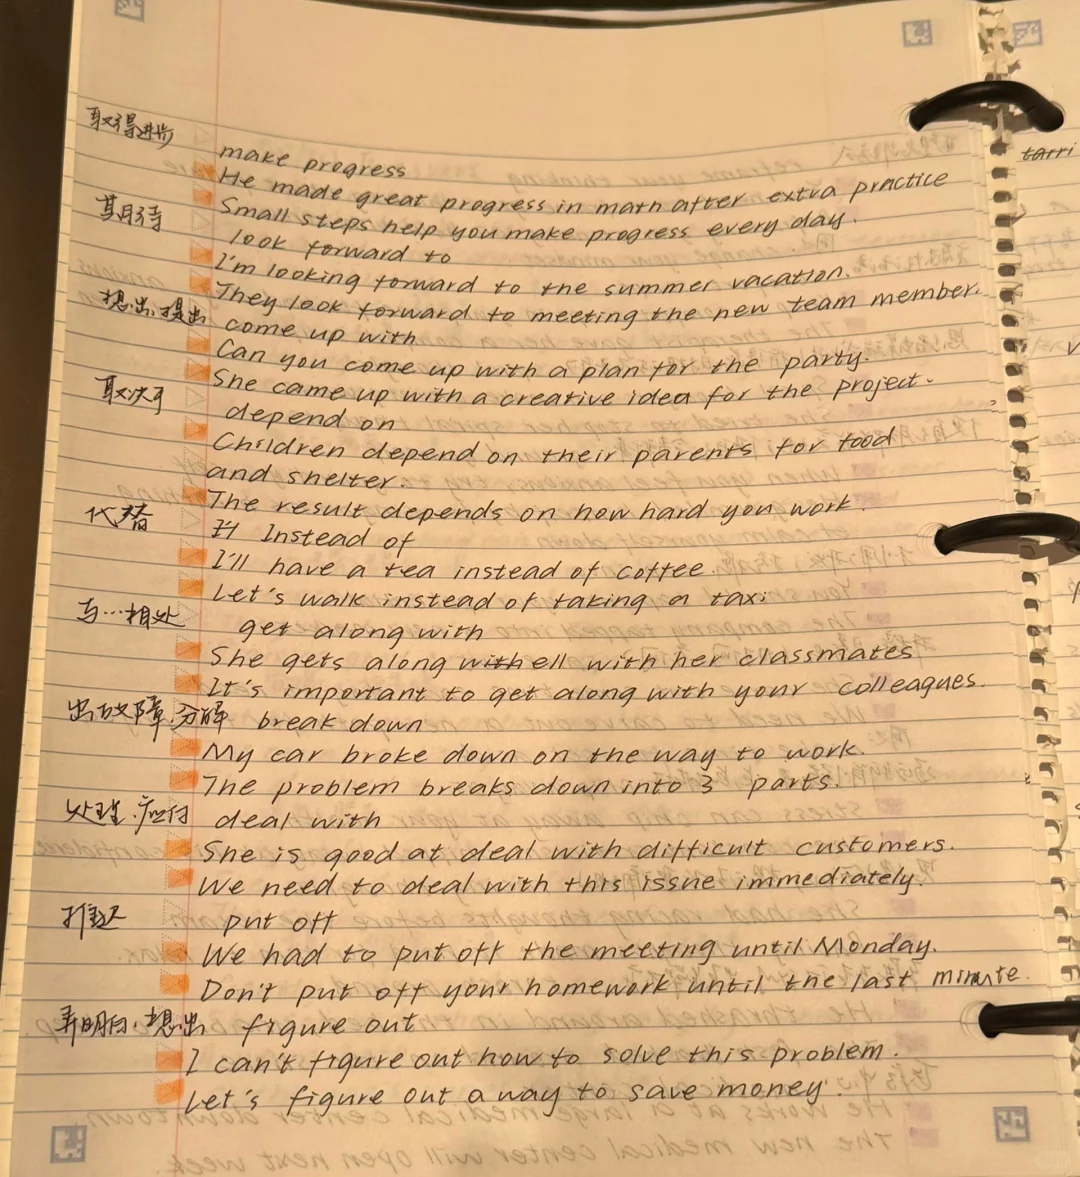 取得进步
make progress
He made great progress in math after extra practice
Small steps help you make progress every day.
期待
look forward to
I'm looking forward to the summer vacation.
They look forward to meeting the new team member.
想出,提出
come up with
Can you come up with a plan for the party.
She came up with a creative idea for the project.
取决于
depend on
Children depend on their parents for food
and shelter.
The result depends on how hard you work.
代替
Instead of
I'll have a tea instead of coffee.
Let's walk instead of taking a taxi
与…相处
get along with
She gets along well with her classmates
It's important to get along with your colleagues.
出故障.分解 break down
My car broke down on the way to work.
The problem breaks down into 3 parts.
处理.应付 deal with
She is good at deal with difficult customers.
We need to deal with this issue immediately.
推迟
put off
We had to put off the meeting until Monday.
Don't put off your homework until the last minute.
弄明白,想出 figure out
I can't figure out how to solve this problem.
Let's figure out a way to save money.
tarri